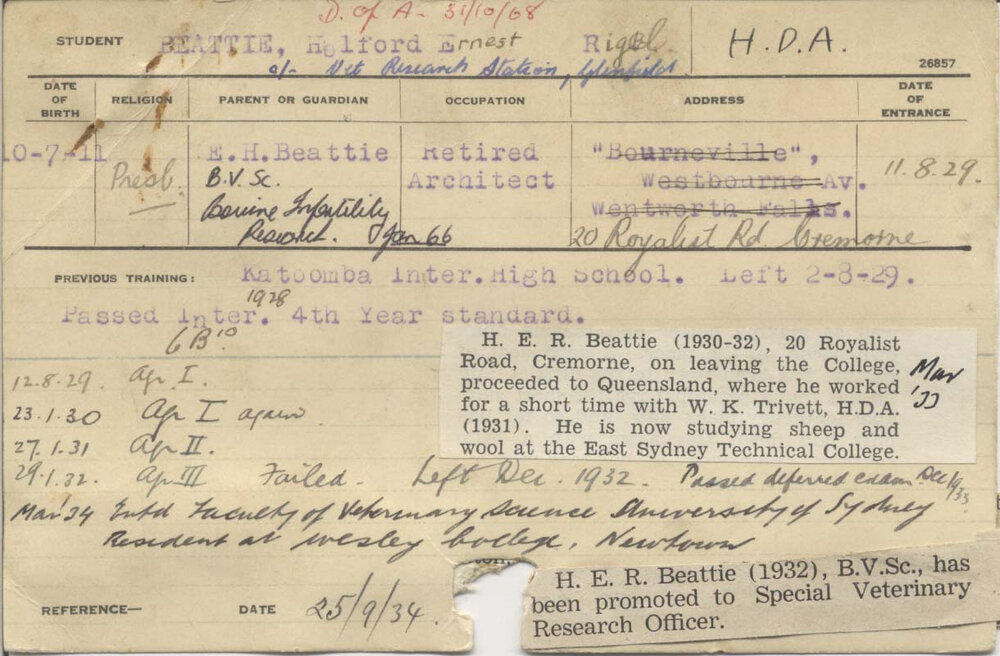 D. of A- 31/10/68
STUDENT BEATTIE, Helford Ernest Rigel. H.D.A.
c/- Vet Research Station, Glenfield 26857
DATE OF BIRTH RELIGION PARENT OR GUARDIAN OCCUPATION ADDRESS DATE OF ENTRANCE
10-7-11 Presb. E.H.Beattie Retired "Bourneville", 11.8.29.
B.V.Sc. Architect Westbourne Av.
Bovine Infertility Wentworth Falls.
Research. Jan 66 20 Royalist Rd Cremorne
PREVIOUS TRAINING: Katoomba Inter.High School. Left 2-8-29.
1928
Passed Inter. 4th Year standard.
6B
H. E. R. Beattie (1930-32), 20 Royalist
Road, Cremorne, on leaving the College,
proceeded to Queensland, where he worked
for a short time with W. K. Trivett, H.D.A.
(1931). He is now studying sheep and
wool at the East Sydney Technical College.
Mar '33
12.8.29. Agr I.
23.1.30 Agr I again
27.1.31 Agr II.
29.1.32. Agr III Failed. Left Dec. 1932. Passed deferred exam Dec
Mar '34 Entd Faculty of Veterinary Science University of Sydney
Resident at Wesley College, Newtown
H. E. R. Beattie (1932), B.V.Sc., has
been promoted to Special Veterinary
Research Officer.
REFERENCE— DATE 25/9/34.